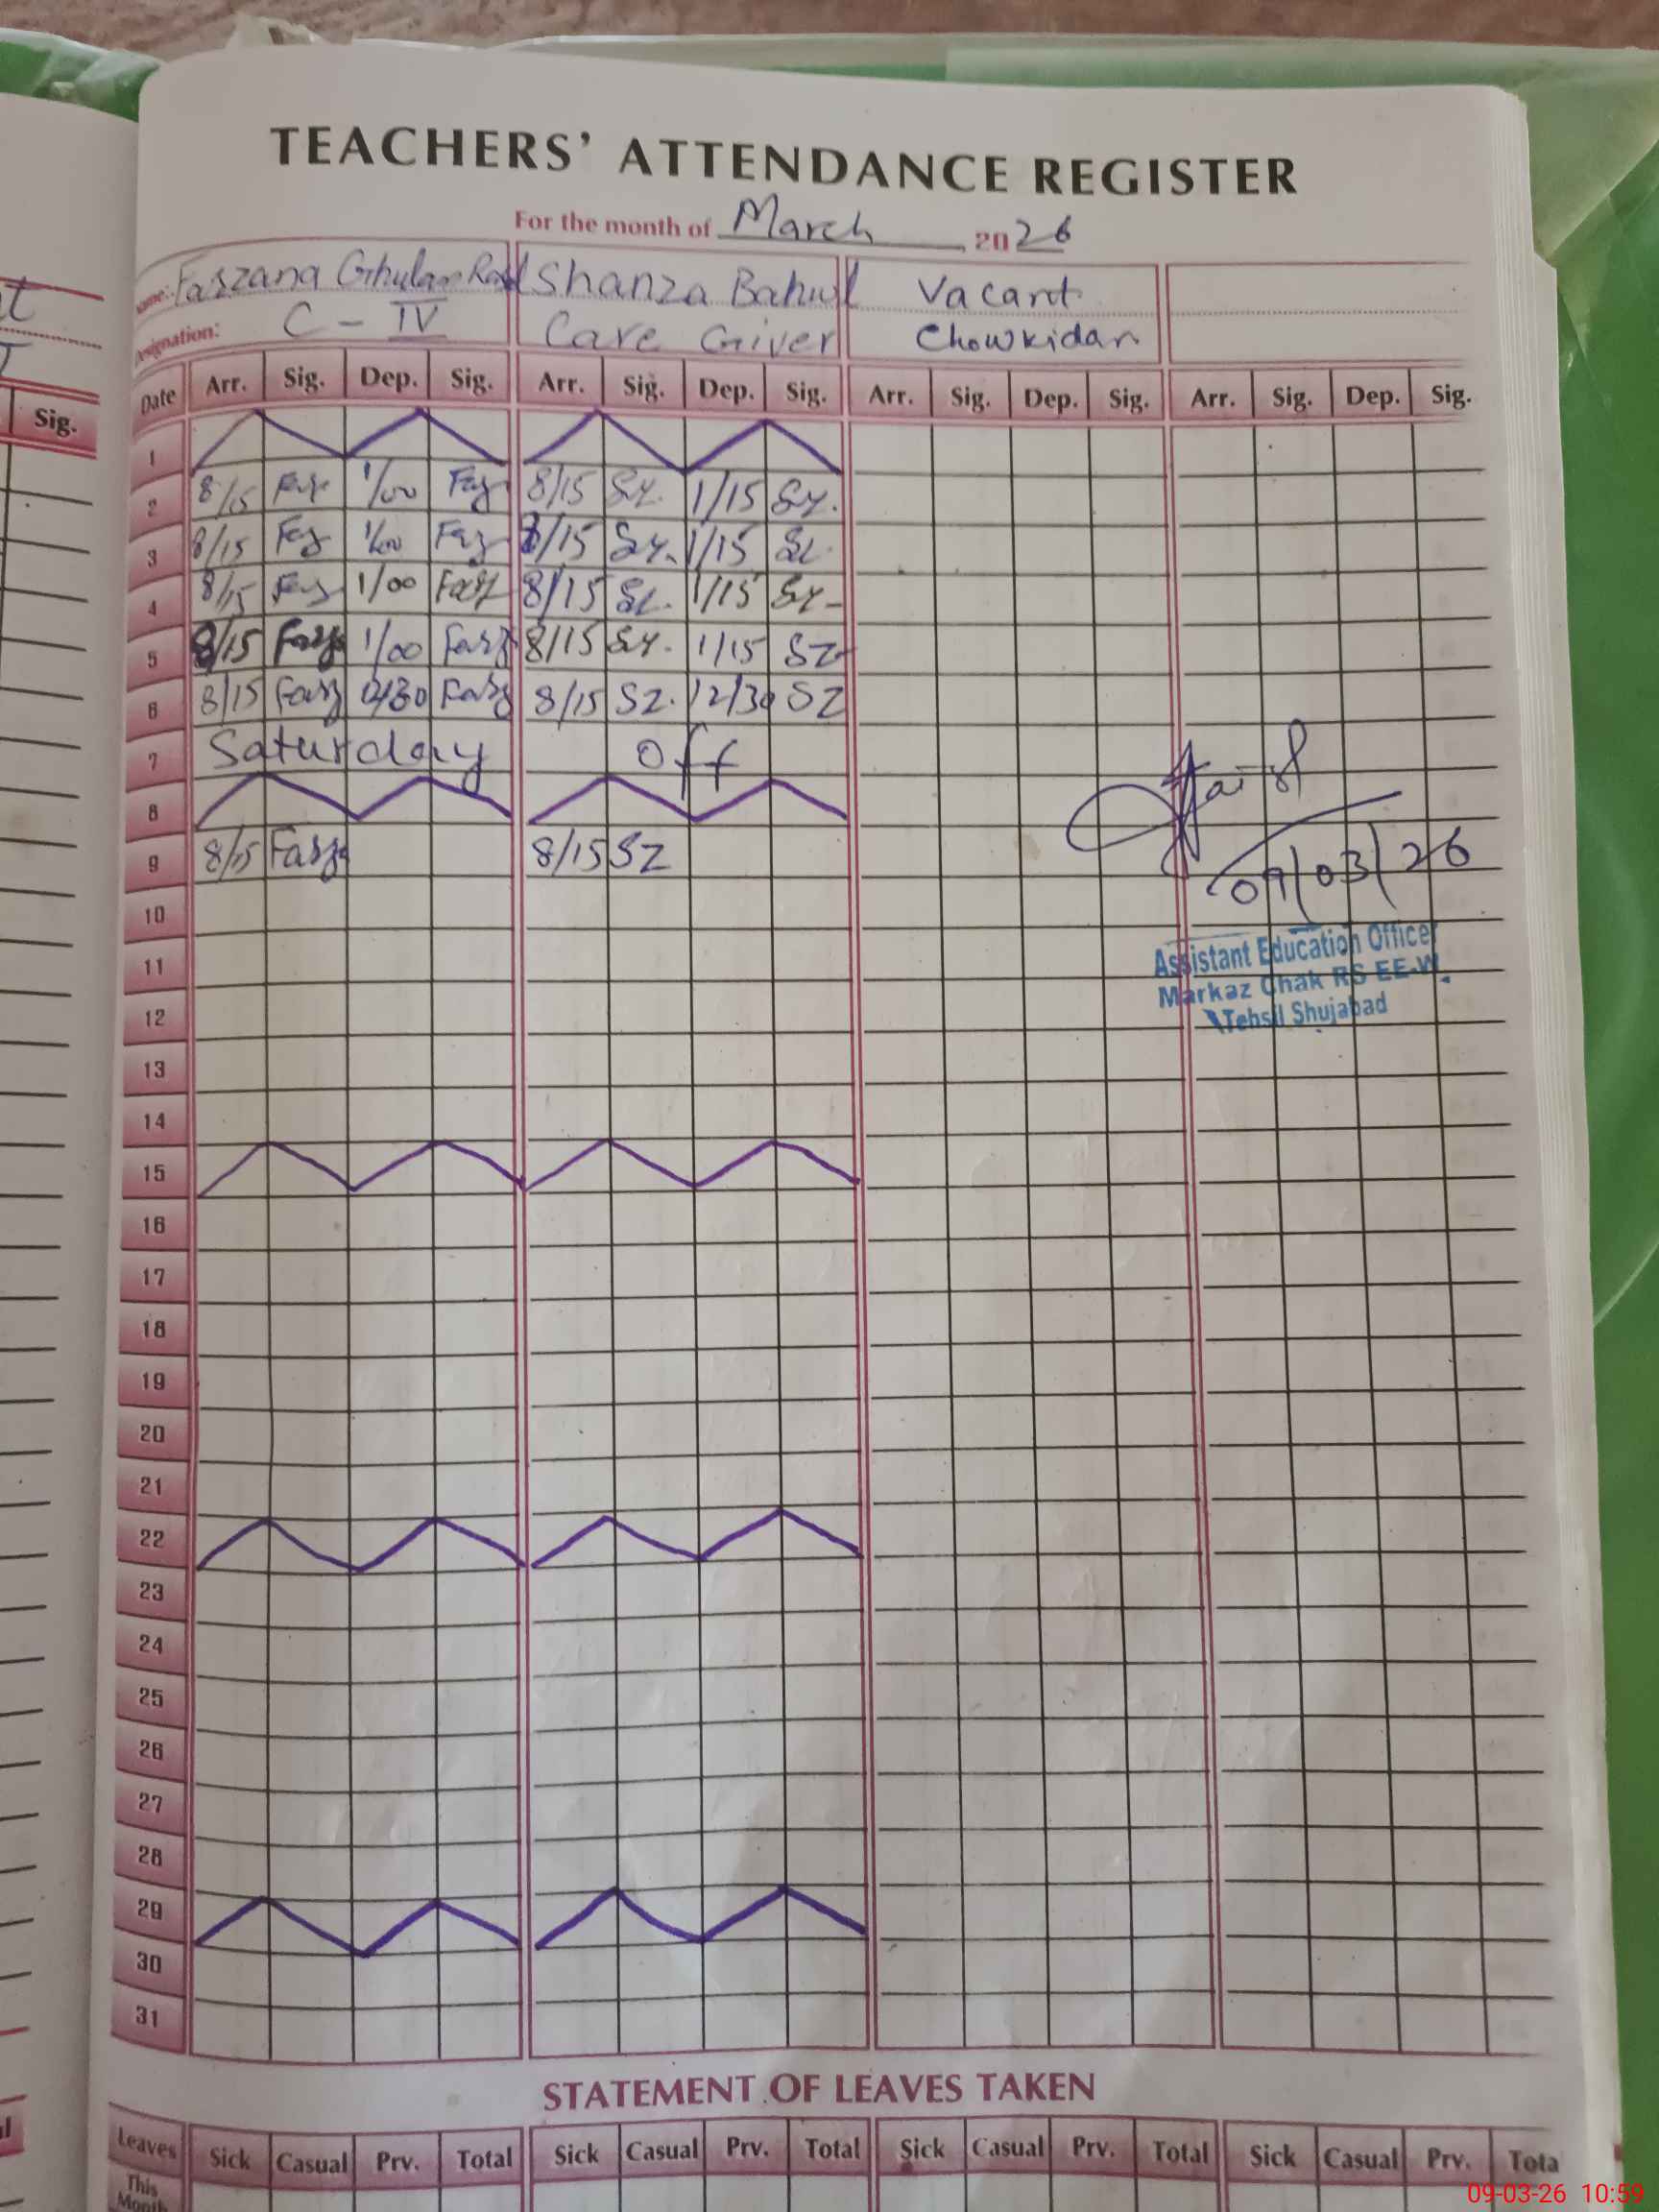 TEACHERS' ATTENDANCE REGISTER
For the month of March 2026
Name: Farzana Ghulam Shanza Vacant
Designation: C - IV Care Giver Chowkidar
Sig.
Date Arr. Sig. Dep. Sig. Arr. Sig. Dep. Sig. Arr. Sig. Dep. Sig. Arr. Sig. Dep. Sig.
1
2 8/15 1/00 8/15 1/15
3 8/15 1/00 8/15 1/15
4 8/15 1/00 8/15 1/15
5 8/15 1/00 8/15 1/15 SZ
6 8/15 8/15 SZ. 12/30 SZ
7 Saturday off
8
9 8/15 8/15 SZ
09/03/26
10
Assistant Education Officer
11
Markaz Chak RS EE-W
12
Tehsil Shujabad
13
14
15
16
17
18
19
20
21
22
23
24
25
26
27
28
29
30
31
STATEMENT OF LEAVES TAKEN
Leaves Sick Casual Prv. Total Sick Casual Prv. Total Sick Casual Prv. Total Sick Casual Prv. Tota
This
Month
09-03-26 10:59